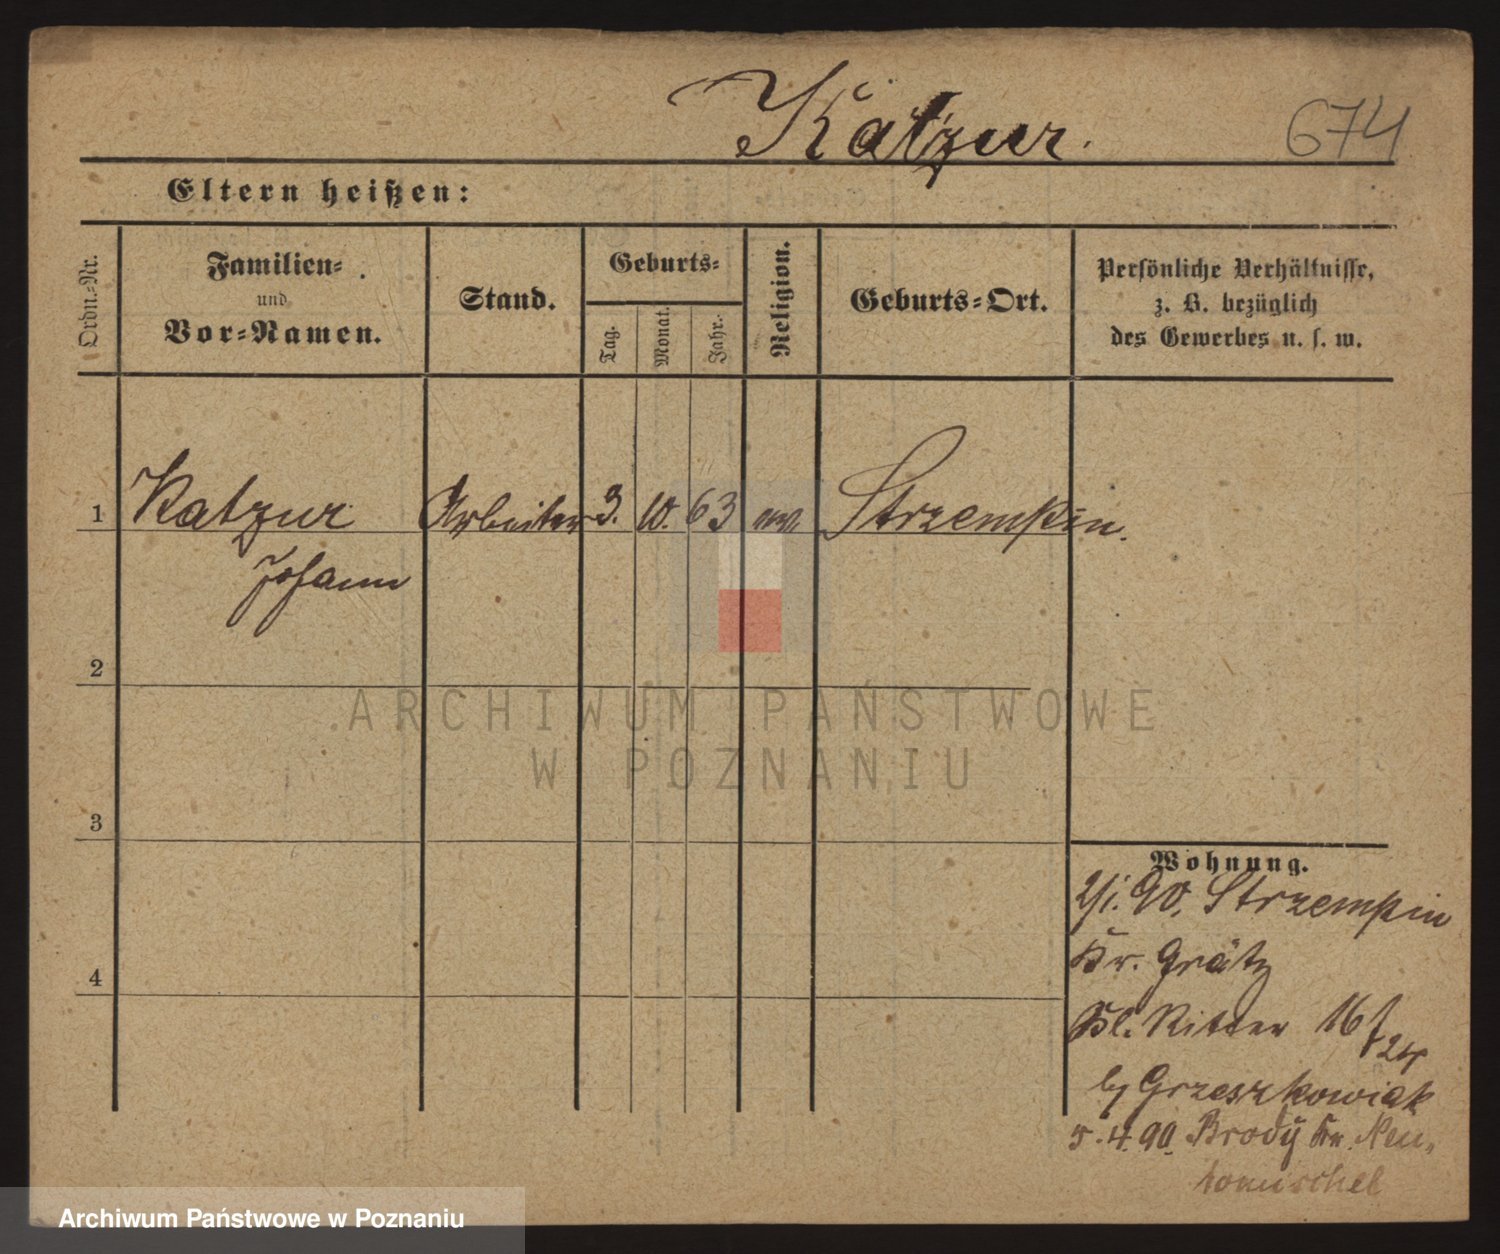 Katzur.
674
Eltern heißen:
Ordn.-Nr.
Familien-
und
Vor-Namen.
Stand.
Geburts-
Tag.
Monat.
Jahr.
Religion.
Geburts-Ort.
Persönliche Verhältnisse,
z. B. bezüglich
des Gewerbes u. s. w.
1
Katzur
Johann
Arbeiter
3.
10.
63
Strzempin.
2
3
4
Wohnung.
2/1. 90. Strzempin
Kr. Grätz
Kl. Ritter 16/24
by Grzeszkowiak
5.4.90. Brody Kr. Neu-
tomischel
ARCHIWUM PAŃSTWOWE
W POZNANIU
Archiwum Państwowe w Poznaniu